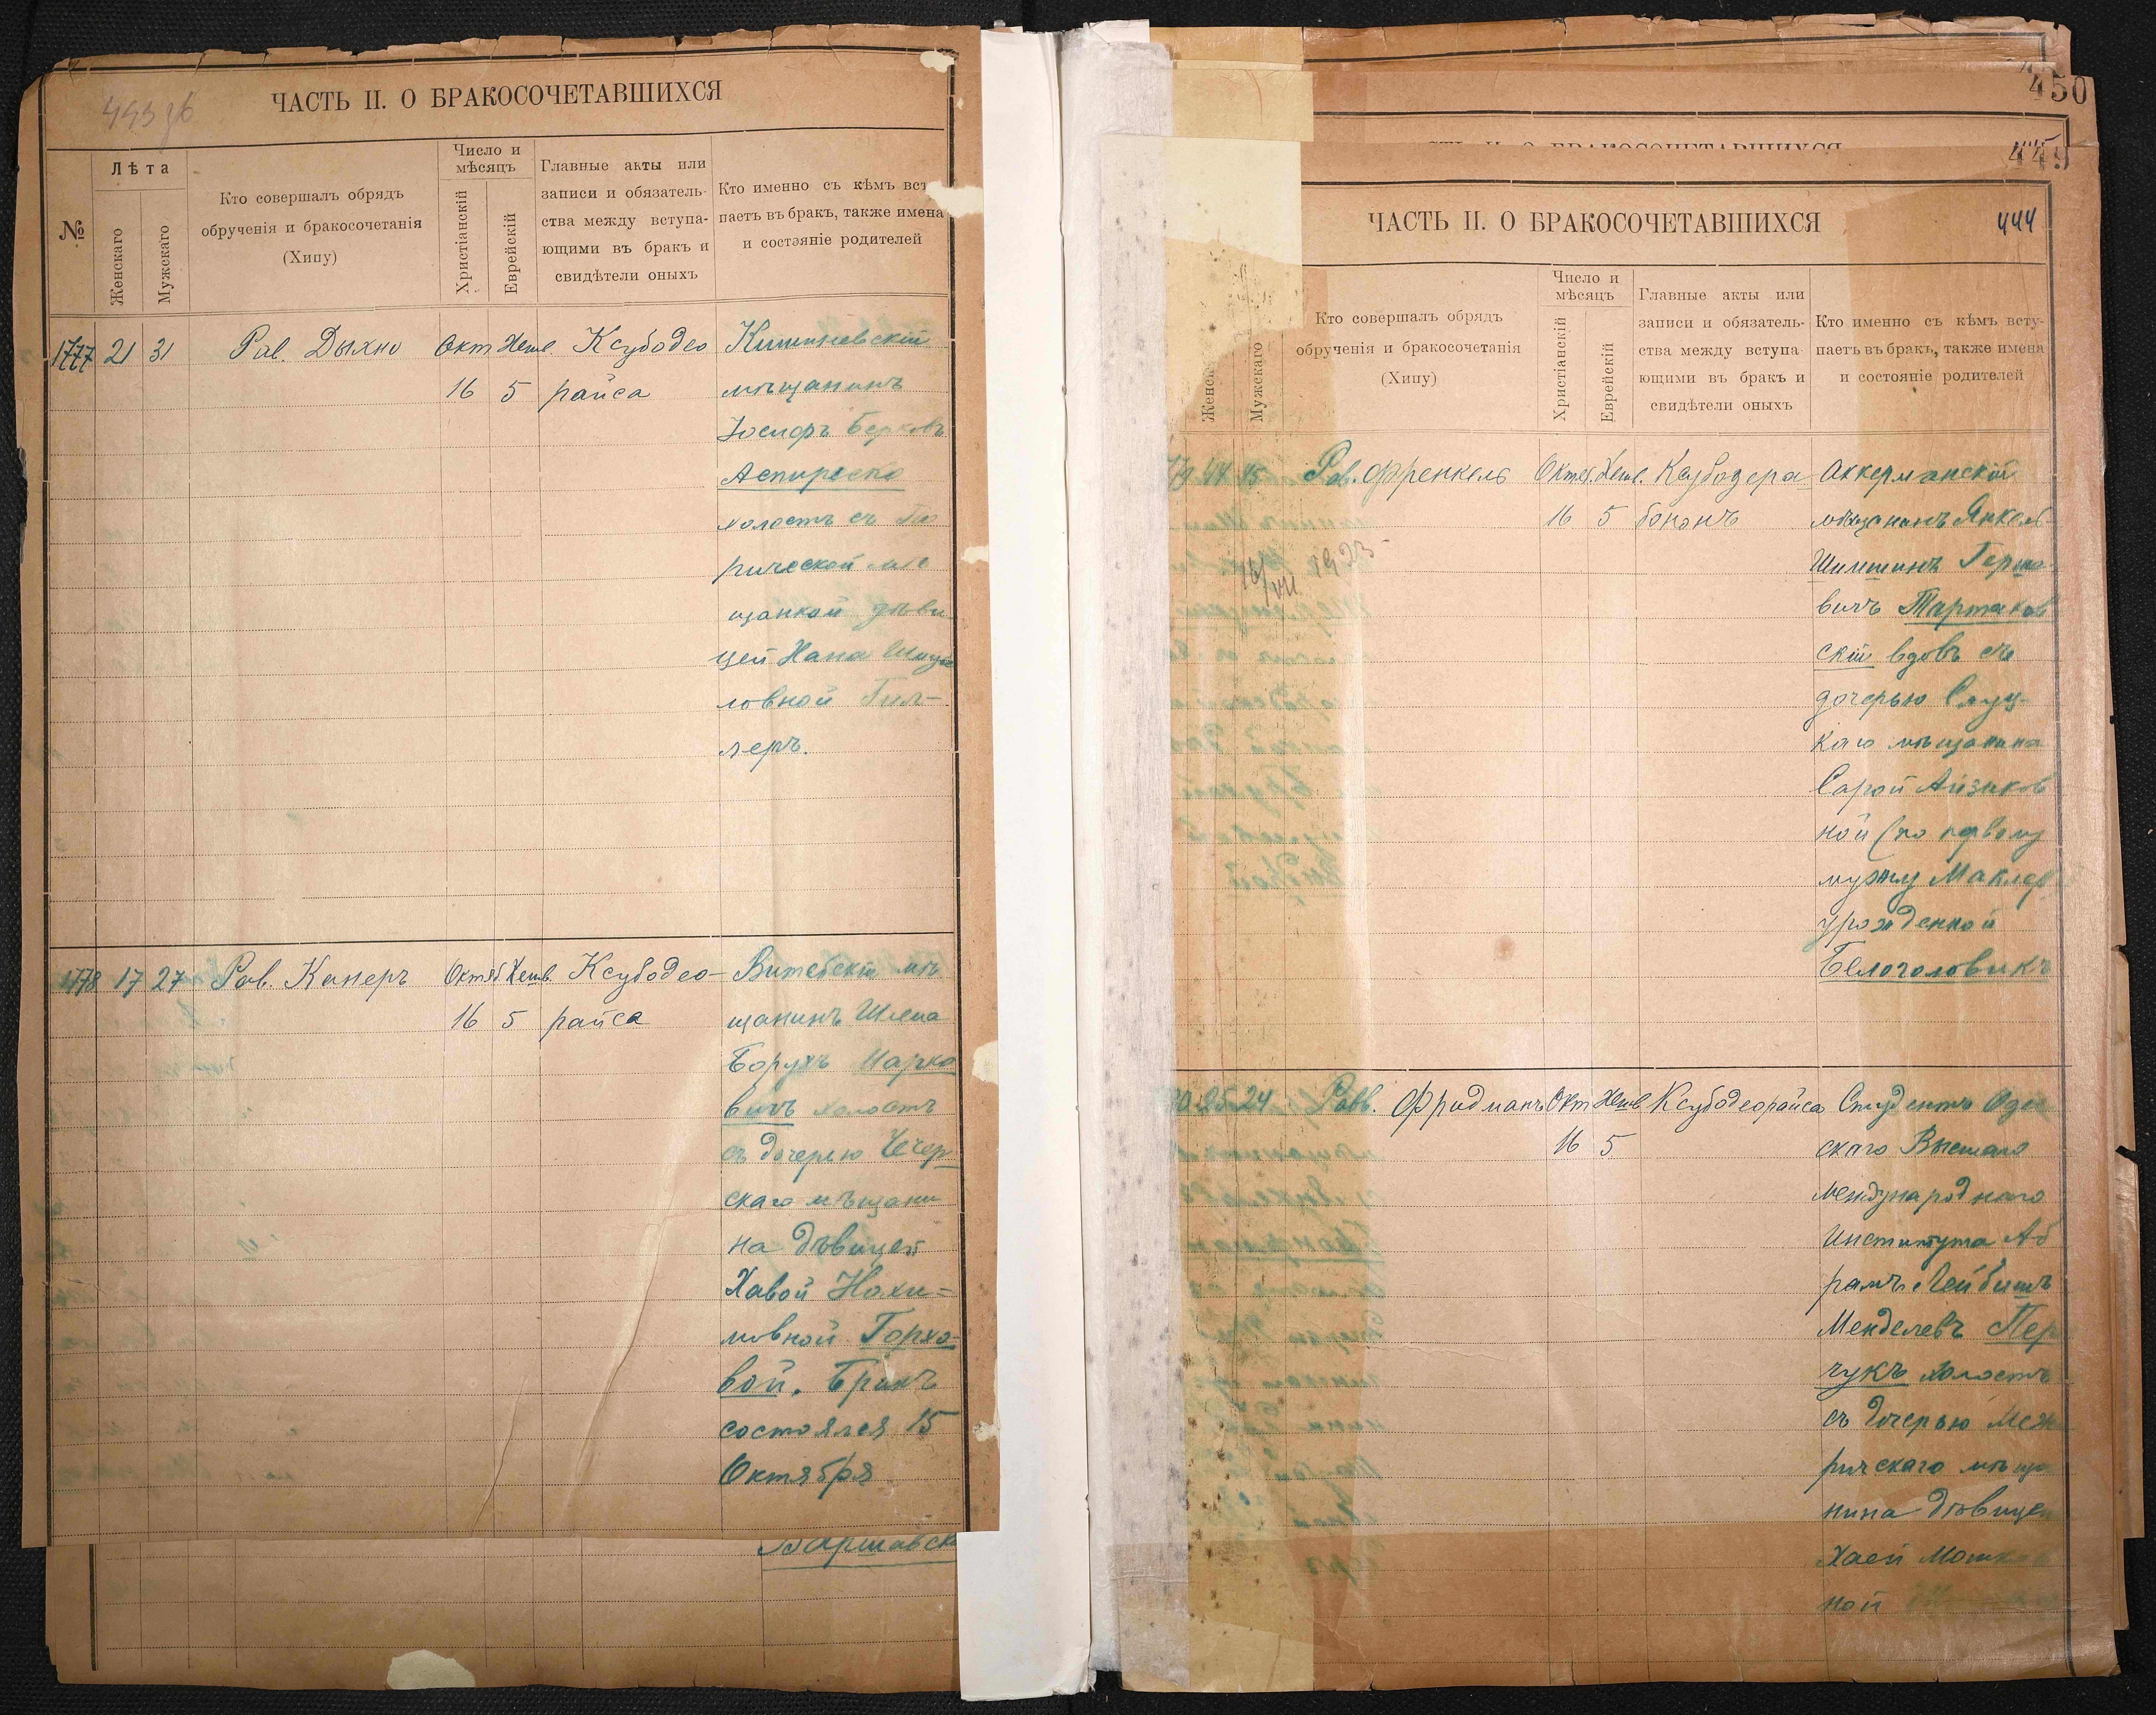 ЧАСТЬ II. О БРАКОСОЧЕТАВШИХСЯ
№
Лѣта
Женскаго
Мужскаго
Кто совершалъ обрядъ
обрученія и бракосочетанія
(Хипу)
Число и
мѣсяцъ
Христіанскій
Еврейскій
Главные акты или
записи и обязатель-
ства между вступа-
ющими въ бракъ и
свидѣтели оныхъ
Кто именно съ кѣмъ вст
паетъ въ бракъ, также имена
и состояніе родителей
1777 21 31 Рав. Дыхно Окт Хешв. Ксубодео Кишиневскій
16 5 райса мѣщанинъ
Іосифъ Берковъ
Аспиреско
холостъ съ
рической мѣ
щанкой дѣви
цей Хана
ловной Гил-
леръ.
1778 17 27 Рав. Канеръ Октяб Хешв. Ксубодео- Витебскій мѣ
16 5 райса щанинъ Шлема
Борухъ Марко
вичъ холостъ
съ дочерью Чечер-
скаго мѣщани
на дѣвицей
Хавой Нохи=
мовной Горхо-
вой. Бракъ
состоялся 15
Октября
Варшавск
450
449
444
ЧАСТЬ II. О БРАКОСОЧЕТАВШИХСЯ
Женск
Мужскаго
Кто совершалъ обрядъ
обрученія и бракосочетанія
(Хипу)
Число и
мѣсяцъ
Христіанскій
Еврейскій
Главные акты или
записи и обязатель-
ства между вступа
ющими въ бракъ и
свидѣтели оныхъ
Кто именно съ кѣмъ всту-
паетъ въ бракъ, также имена
и состояніе родителей
79 44 45 Рав. Френкель Октя. Хешв. Ксубодера Аккерманскій
16 5 бононъ мѣщанинъ Янкель
Шимшинъ Герко-
вичъ Тартаков
скій вдовъ съ
дочерью Слуц-
каго мѣщанина
Сарой Айзиков
ной (по первому
мужу Маклер
урожденной
Белоголовикъ
25 24 Равв. Фридманъ Окт Хешв Ксубодеорайса Студентъ Одес
16 5 скаго Высшаго
Международнаго
Института Аб
рамъ Лейбишъ
Менделевъ Пер
чукъ холостъ
съ дочерью Меж
ричскаго мѣща
нина дѣвицей
Хаей Мошков
ной